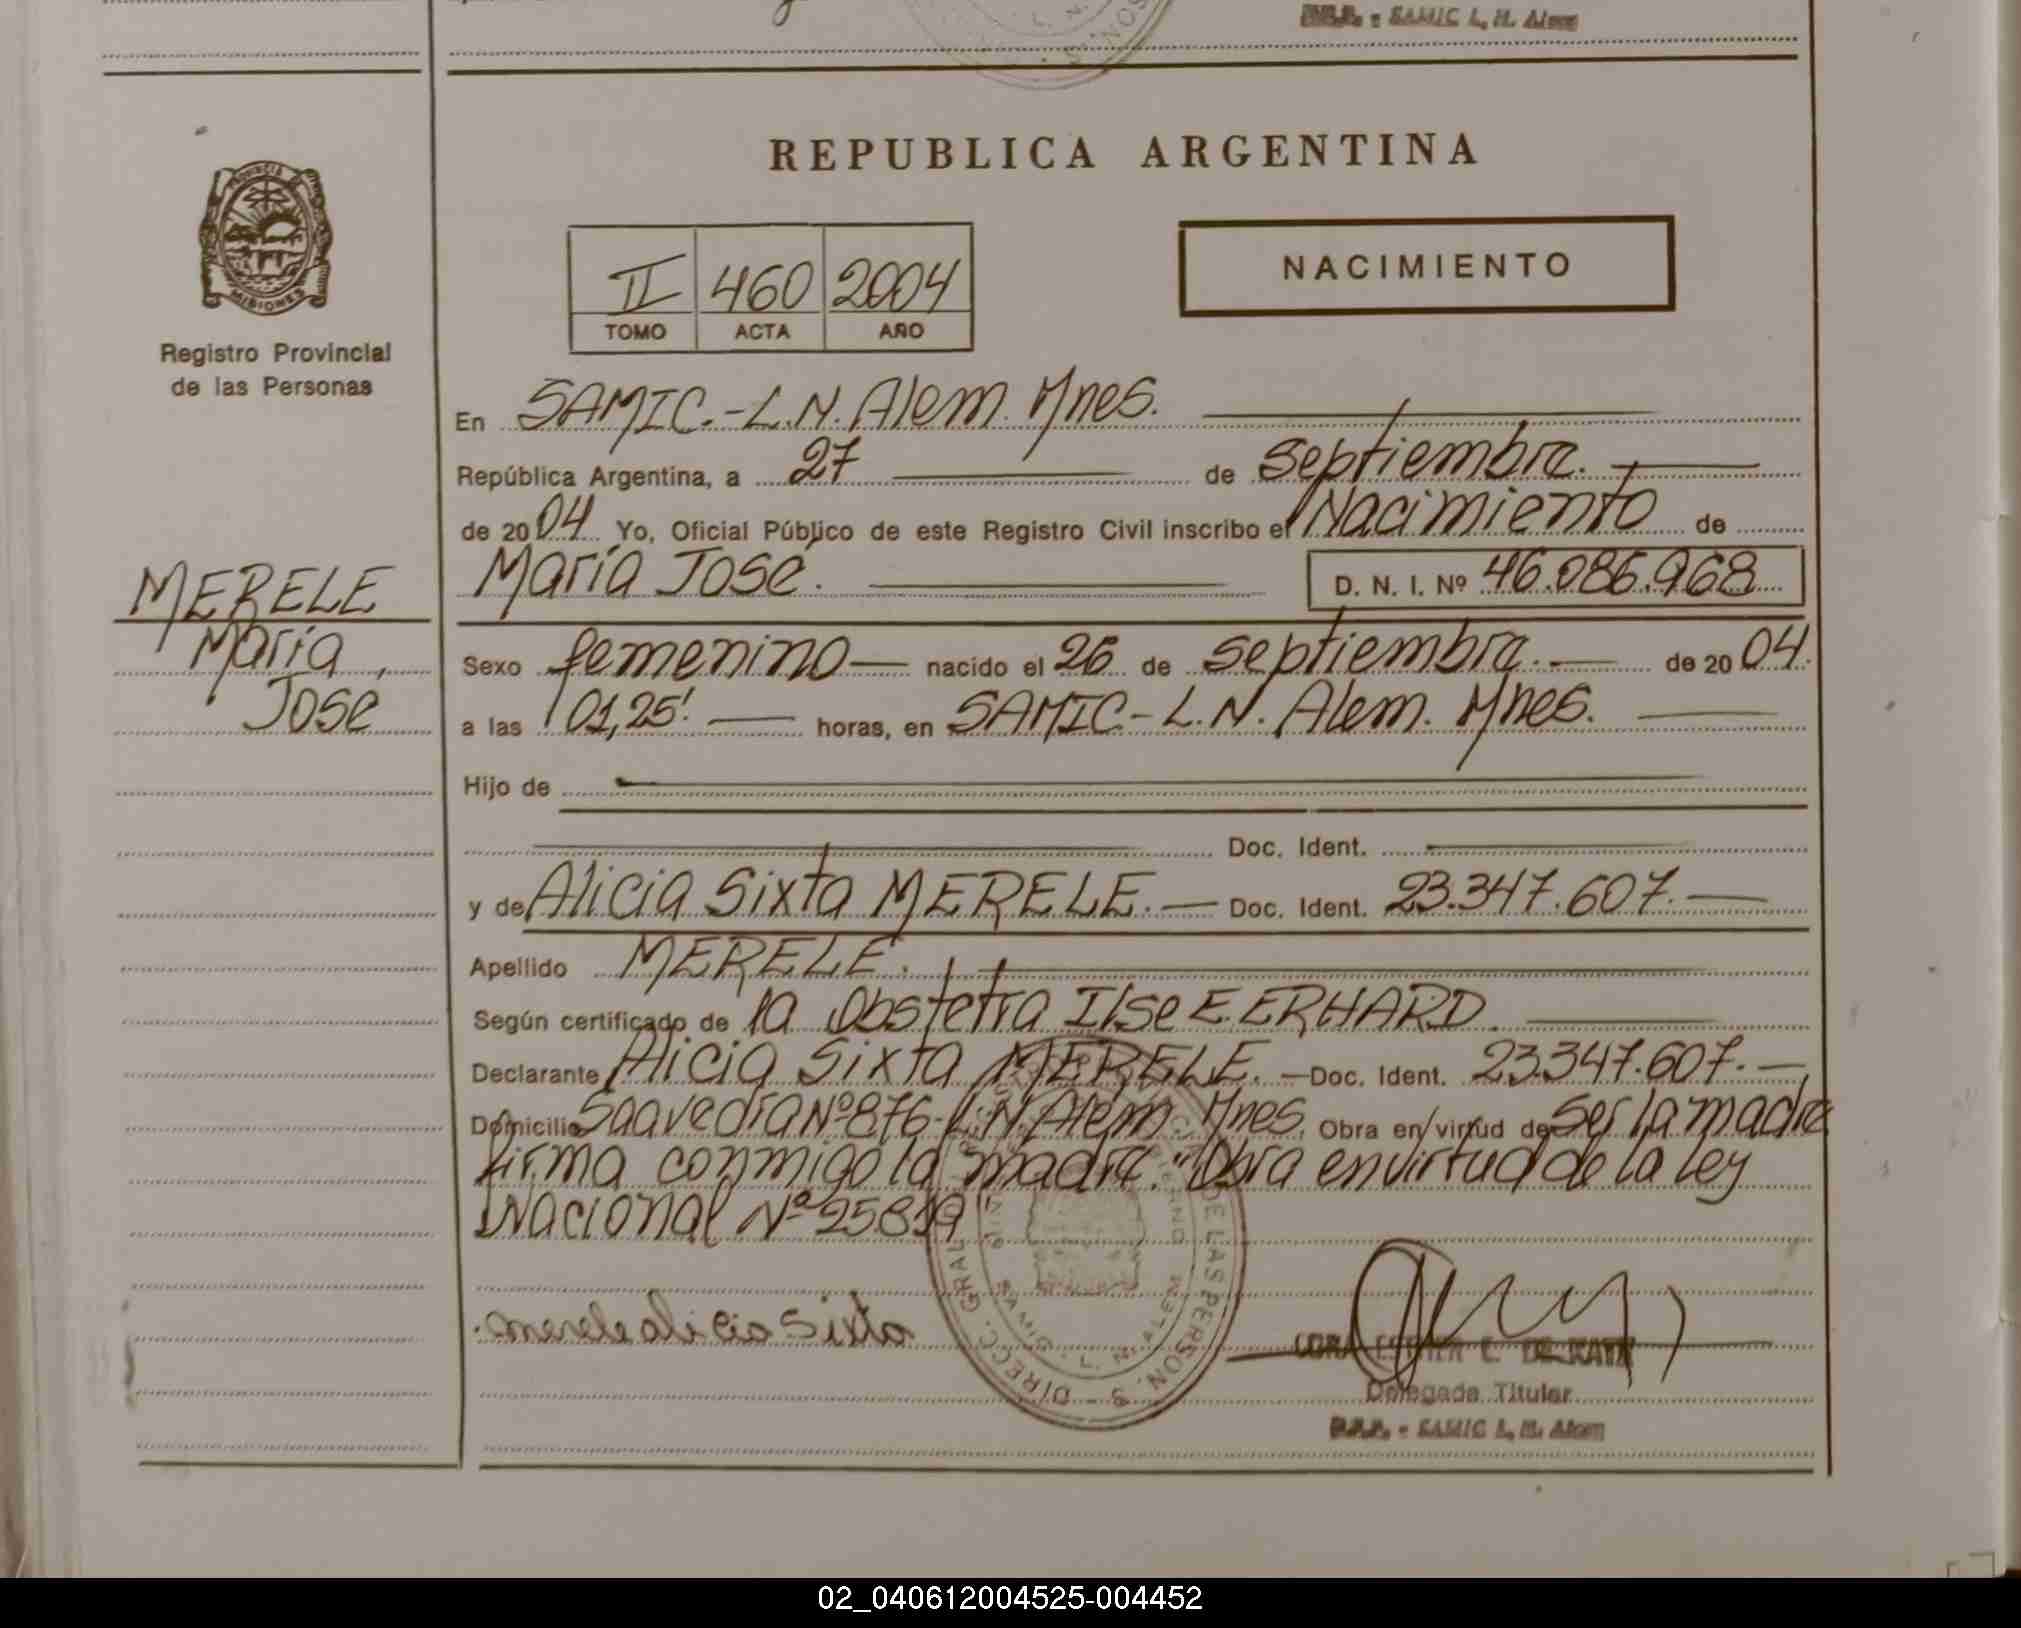 SAMIC L. N. Alem
REPUBLICA ARGENTINA
PROVINCIA DE
MISIONES
Registro Provincial
de las Personas
II 460 2004
TOMO ACTA AÑO
NACIMIENTO
En SAMIC.-L.N. Alem. Mnes.
República Argentina, a 27 de septiembre.
de 2004 Yo, Oficial Público de este Registro Civil inscribo el Nacimiento de
María José. D. N. I. Nº 46.086.968
MERELE
María
José
Sexo femenino nacido el 26 de septiembre. de 2004.
a las 01,25'. horas, en SAMIC.-L.N. Alem. Mnes.
Hijo de
Doc. Ident.
y de Alicia Sixta MERELE. Doc. Ident. 23.347.607.
Apellido MERELE.
Según certificado de la Obstetra Ilse E. ERHARD.
Declarante Alicia Sixta MERELE. Doc. Ident. 23.347.607.
Domicilio Saavedra Nº 876-L.N. Alem. Mnes. Obra en virtud de ser la madre
firma conmigo la madre. "Obra en virtud de la Ley
Nacional Nº 25819"
merele alicia sixta
DIRECC. GRAL. DE LAS PERSONAS
L. N. ALEM
DE KATZ
Delegada Titular
SAMIC L. N. Alem
02_040612004525-004452